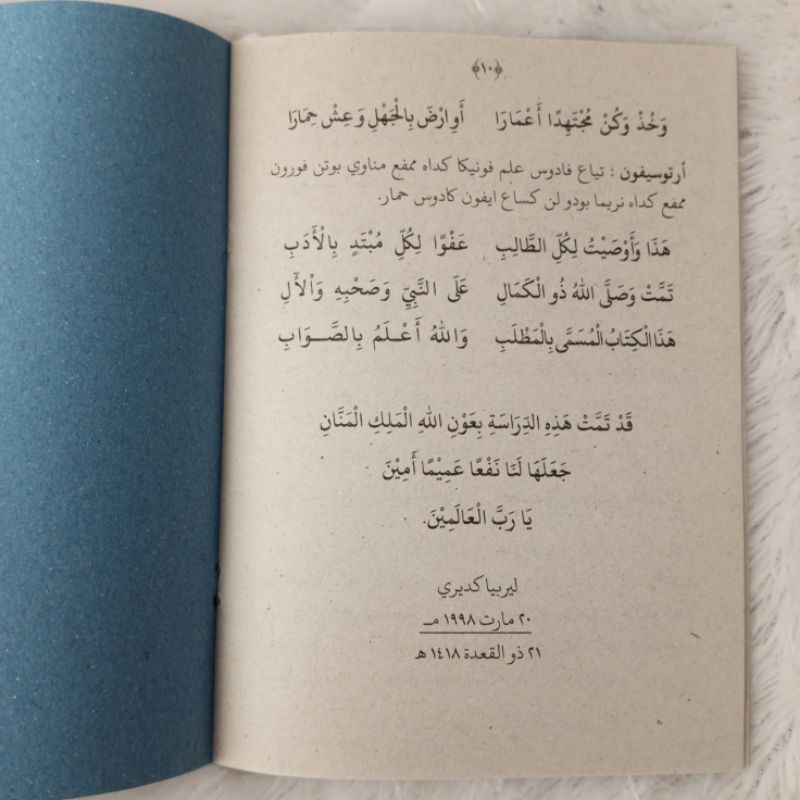 ﴿١٠﴾
وَخُذْ وَكُنْ مُجْتَهِدًا أَعْمَارَا أَوِارْضَ بِالْجَهْلِ وَعِشْ حِمَارَا
أرتوسيفون : تياع فادوس علم فونيكا كداه ممفع مناوي بوتن فورون
ممفع كداه نريما بودو لن كساع ايفون كادوس حمار.
هَذَا وَأَوْصَيْتُ لِكُلِّ الطَّالِبِ عَفْوًا لِكُلِّ مُبْتَدٍ بِالْأَدَبِ
تَمَّتْ وَصَلَّى اللهُ ذُو الْكَمَالِ عَلَى النَّبِيِّ وَصَحْبِهِ وَاْلأَلِ
هَذَا الْكِتَابُ الْمُسَمَّى بِالْمَطْلَبِ وَاللهُ أَعْلَمُ بِالصَّوَابِ
قَدْ تَمَّتْ هَذِهِ الدِّرَاسَةِ بِعَوْنِ اللهِ الْمَلِكِ الْمَنَّانِ
جَعَلَهَا لَنَا نَفْعًا عَمِيْمًا أَمِيْنَ
يَا رَبَّ الْعَالَمِيْنَ.
ليربيا كديري
٢٠ مارت ١٩٩٨ مـ
٢١ ذو القعدة ١٤١٨ هـ